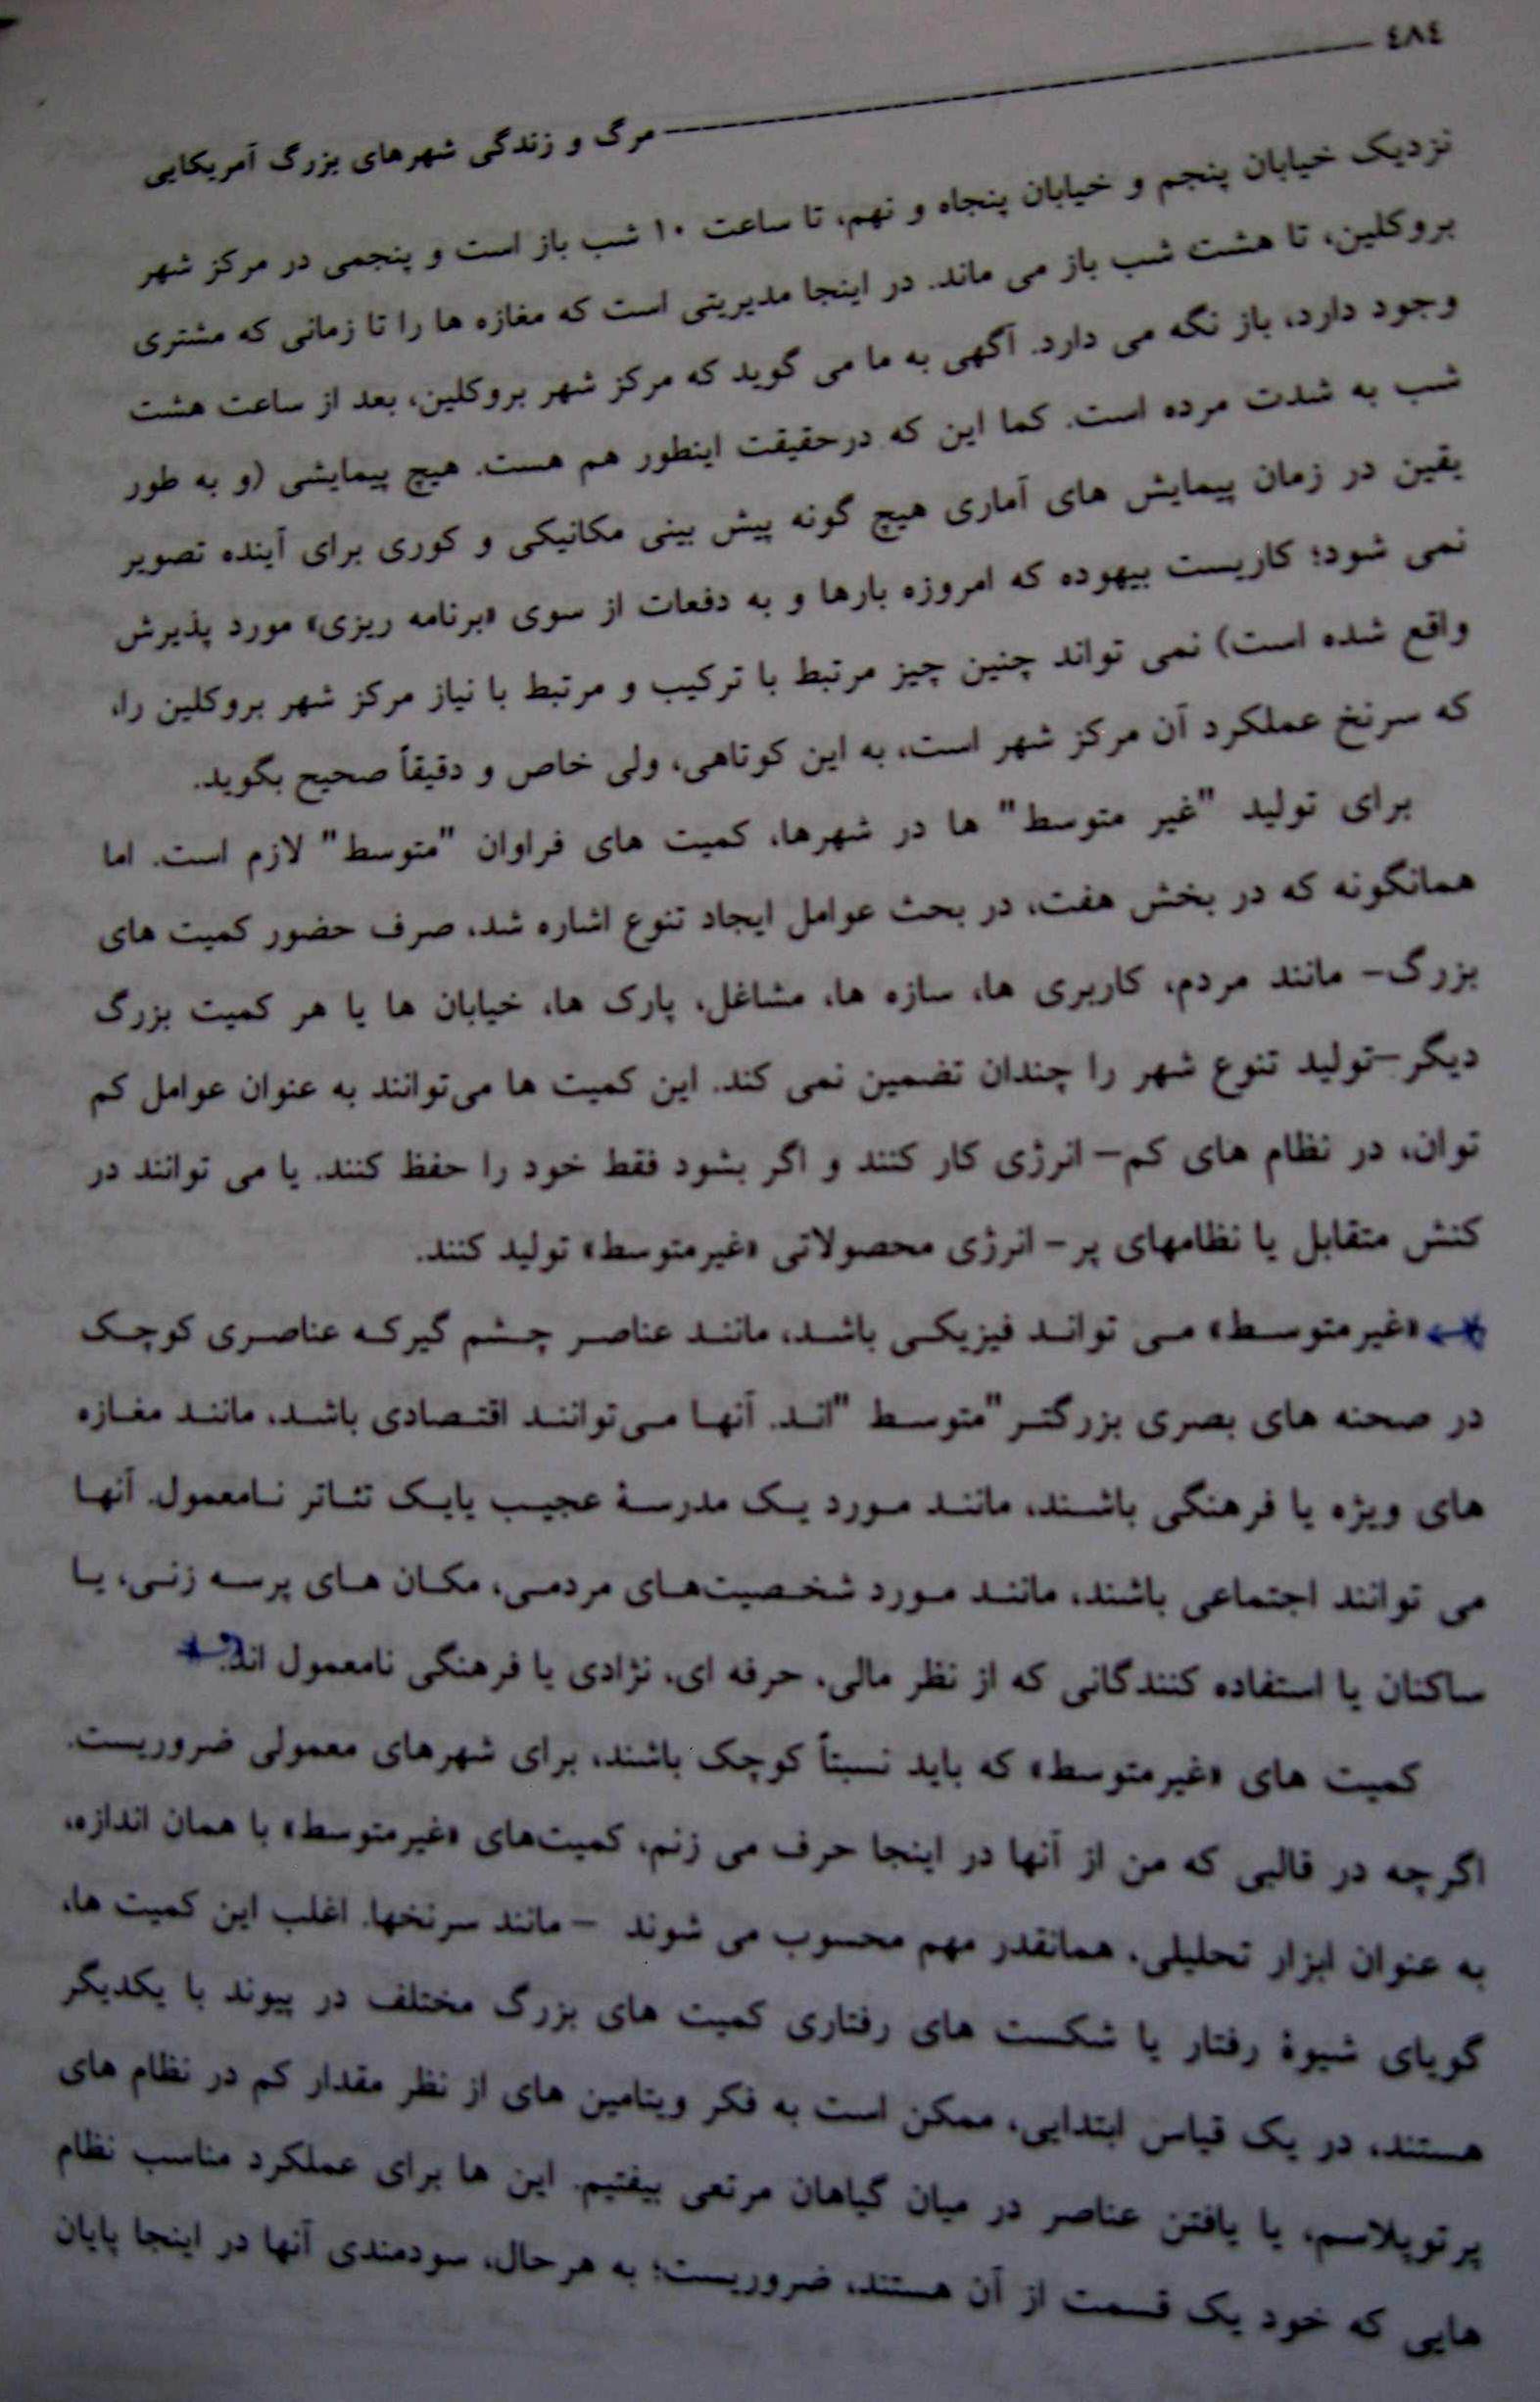 ٤٨٤
مرگ و زندگی شهرهای بزرگ آمریکایی
نزدیک خیابان پنجم و خیابان پنجاه و نهم، تا ساعت ۱۰ شب باز است و پنجمی در مرکز شهر
بروکلین، تا هشت شب باز می ماند. در اینجا مدیریتی است که مغازه ها را تا زمانی که مشتری
وجود دارد، باز نگه می دارد. آگهی به ما می گوید که مرکز شهر بروکلین، بعد از ساعت هشت
شب به شدت مرده است. کما این که درحقیقت اینطور هم هست. هیچ پیمایشی (و به طور
یقین در زمان پیمایش های آماری هیچ گونه پیش بینی مکانیکی و کوری برای آینده تصویر
نمی شود؛ کاریست بیهوده که امروزه بارها و به دفعات از سوی «برنامه ریزی» مورد پذیرش
واقع شده است) نمی تواند چنین چیز مرتبط با ترکیب و مرتبط با نیاز مرکز شهر بروکلین را،
که سرنخ عملکرد آن مرکز شهر است، به این کوتاهی، ولی خاص و دقیقاً صحیح بگوید.
برای تولید "غیر متوسط" ها در شهرها، کمیت های فراوان "متوسط" لازم است. اما
همانگونه که در بخش هفت، در بحث عوامل ایجاد تنوع اشاره شد، صرف حضور کمیت های
بزرگ– مانند مردم، کاربری ها، سازه ها، مشاغل، پارک ها، خیابان ها یا هر کمیت بزرگ
دیگر–تولید تنوع شهر را چندان تضمین نمی کند. این کمیت ها می‌توانند به عنوان عوامل کم
توان، در نظام های کم– انرژی کار کنند و اگر بشود فقط خود را حفظ کنند. یا می توانند در
کنش متقابل یا نظامهای پر– انرژی محصولاتی «غیرمتوسط» تولید کنند.
«غیرمتوسط» می تواند فیزیکی باشد، مانند عناصر چشم گیرکه عناصری کوچک
در صحنه های بصری بزرگتر "متوسط "اند. آنها می‌توانند اقتصادی باشد، مانند مغازه
های ویژه یا فرهنگی باشند، مانند مورد یک مدرسۀ عجیب یایک تئاتر نامعمول. آنها
می توانند اجتماعی باشند، مانند مورد شخصیت‌های مردمی، مکان های پرسه زنی، یا
ساکنان یا استفاده کنندگانی که از نظر مالی، حرفه ای، نژادی یا فرهنگی نامعمول اند.
کمیت های «غیرمتوسط» که باید نسبتاً کوچک باشند، برای شهرهای معمولی ضروریست.
اگرچه در قالبی که من از آنها در اینجا حرف می زنم، کمیت‌های «غیرمتوسط» با همان اندازه،
به عنوان ابزار تحلیلی، همانقدر مهم محسوب می شوند – مانند سرنخها. اغلب این کمیت ها،
گویای شیوۀ رفتار یا شکست های رفتاری کمیت های بزرگ مختلف در پیوند با یکدیگر
هستند، در یک قیاس ابتدایی، ممکن است به فکر ویتامین های از نظر مقدار کم در نظام های
پرتوپلاسم، یا یافتن عناصر در میان گیاهان مرتعی بیفتیم. این ها برای عملکرد مناسب نظام
هایی که خود یک قسمت از آن هستند، ضروریست؛ به هرحال، سودمندی آنها در اینجا پایان